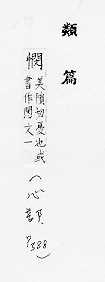 類篇
憫 美隕切憂也或
書作閔文一
(心 388)